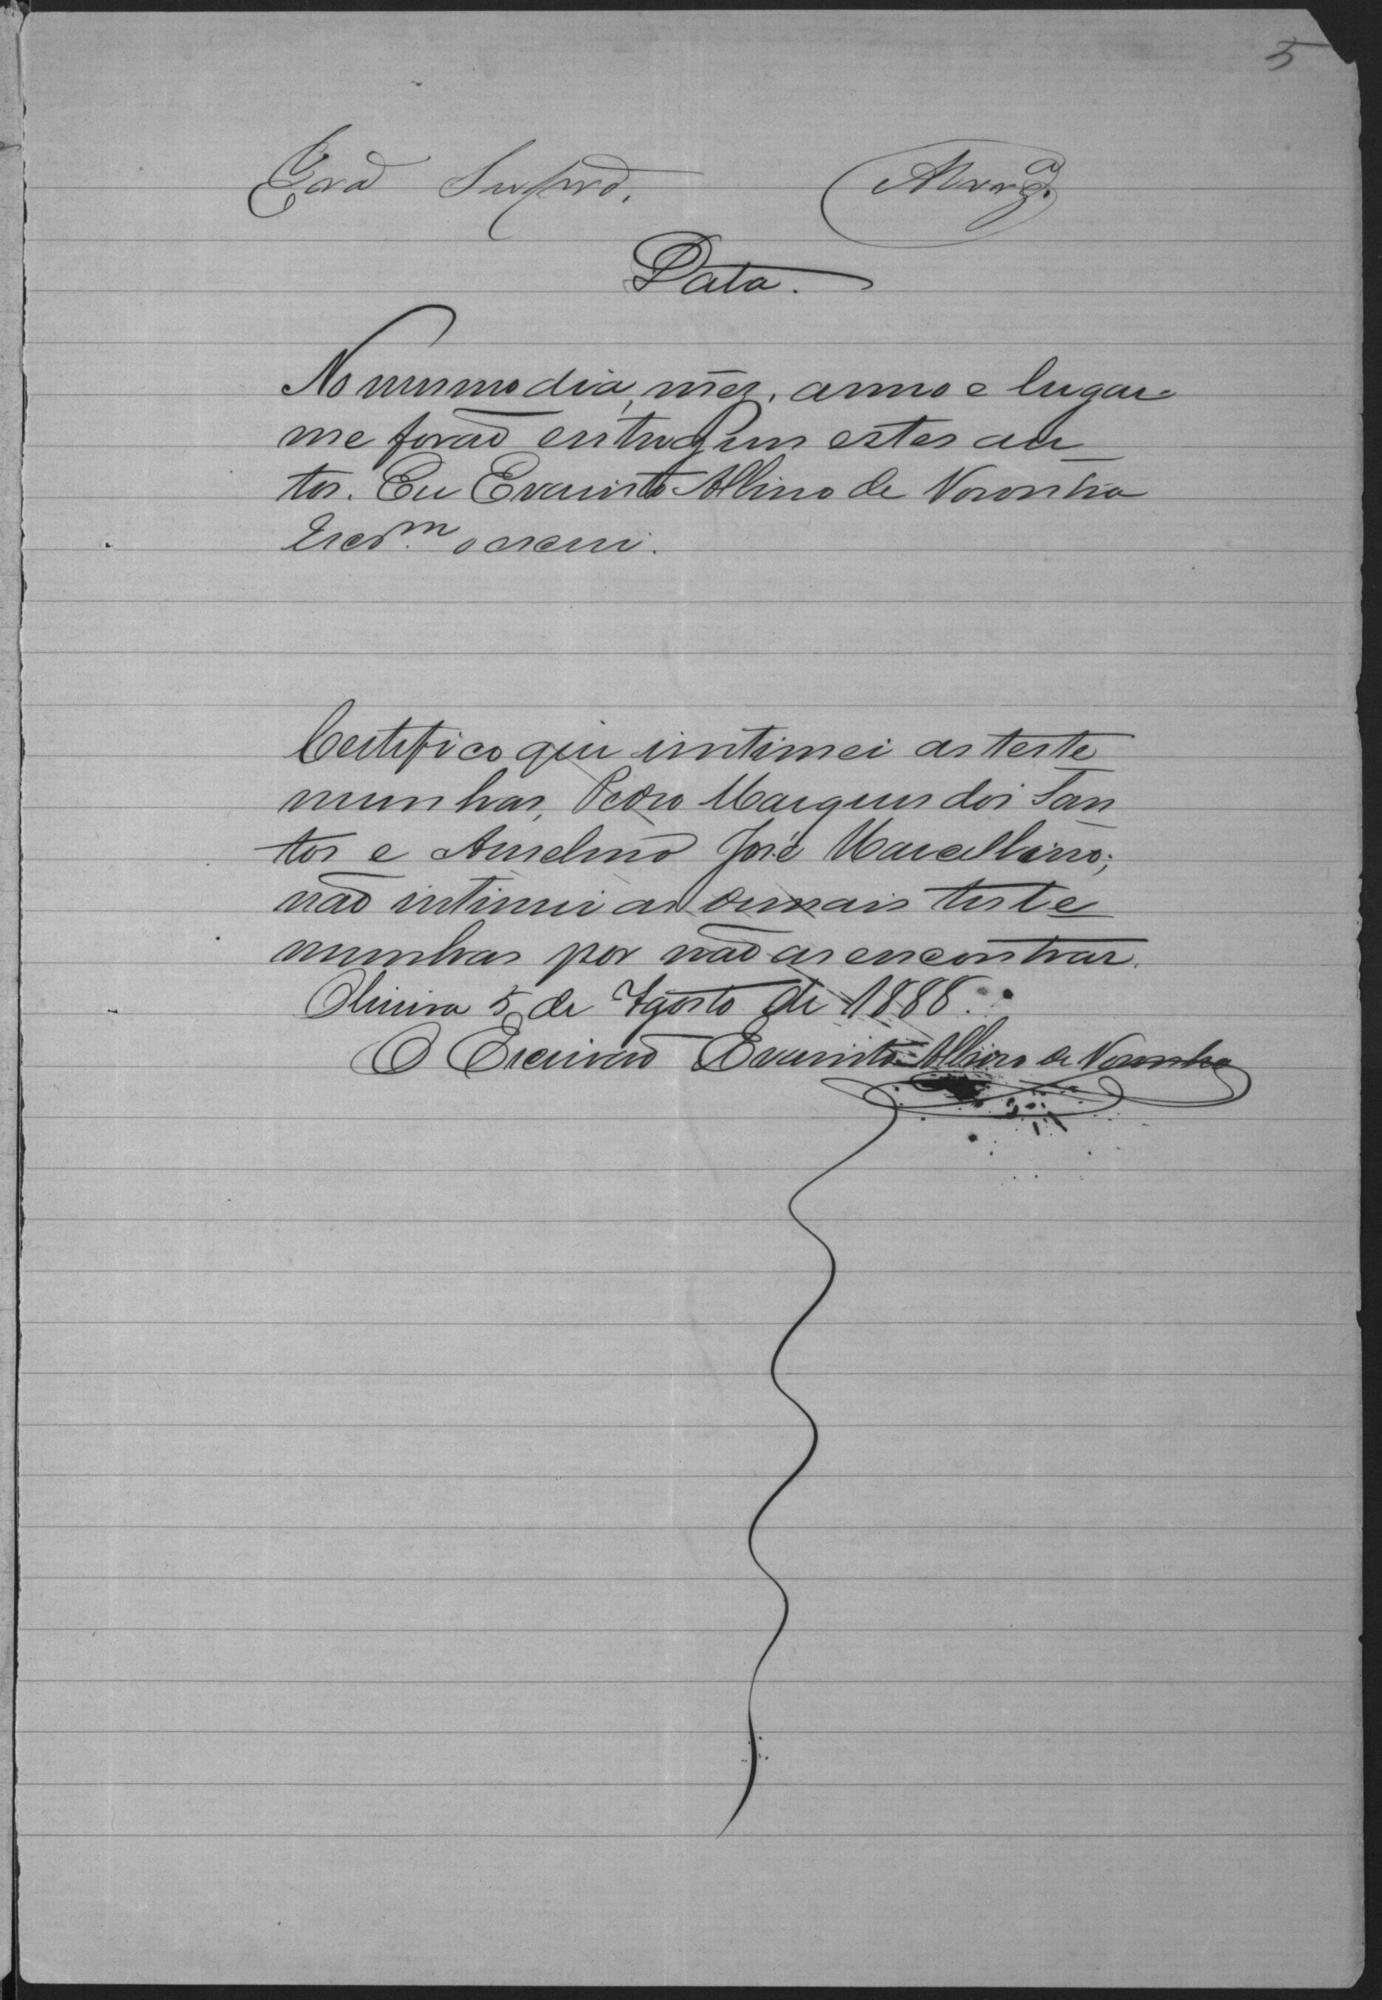 5
Era Supra.
Data.
No mesmo dia, mêz, anno e lugar
me forão entregues estes au
tos. Eu Evaristo Albino de Noronha
Escr.m o escrevi.
Certifico que intimei as teste
munhas, Pedro Marques dos San
tos e Anselmo José Marcellino;
não intimei as demais teste
munhas por não as encontrar.
Oliveira 5 de Agosto de 1888.
O Escrivão Evaristo Albino de Noronha